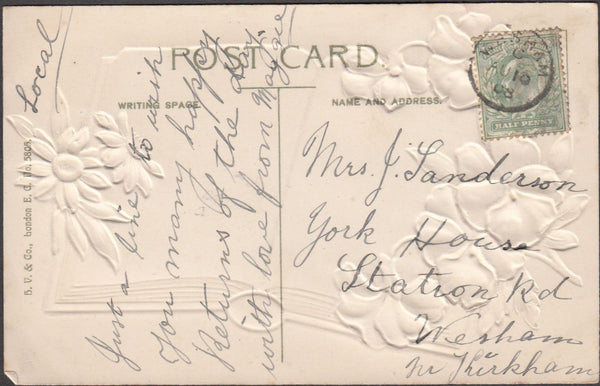 Local
POST CARD.
WRITING SPACE.
NAME AND ADDRESS.
Just a line to wish
you many happy
Returns of the day
with love from Maggie
Mrs J. Sanderson
York House
Station Rd
Wesham
Nr Kirkham
HALF PENNY
S. V. & Co., London E. C. No. 5805.